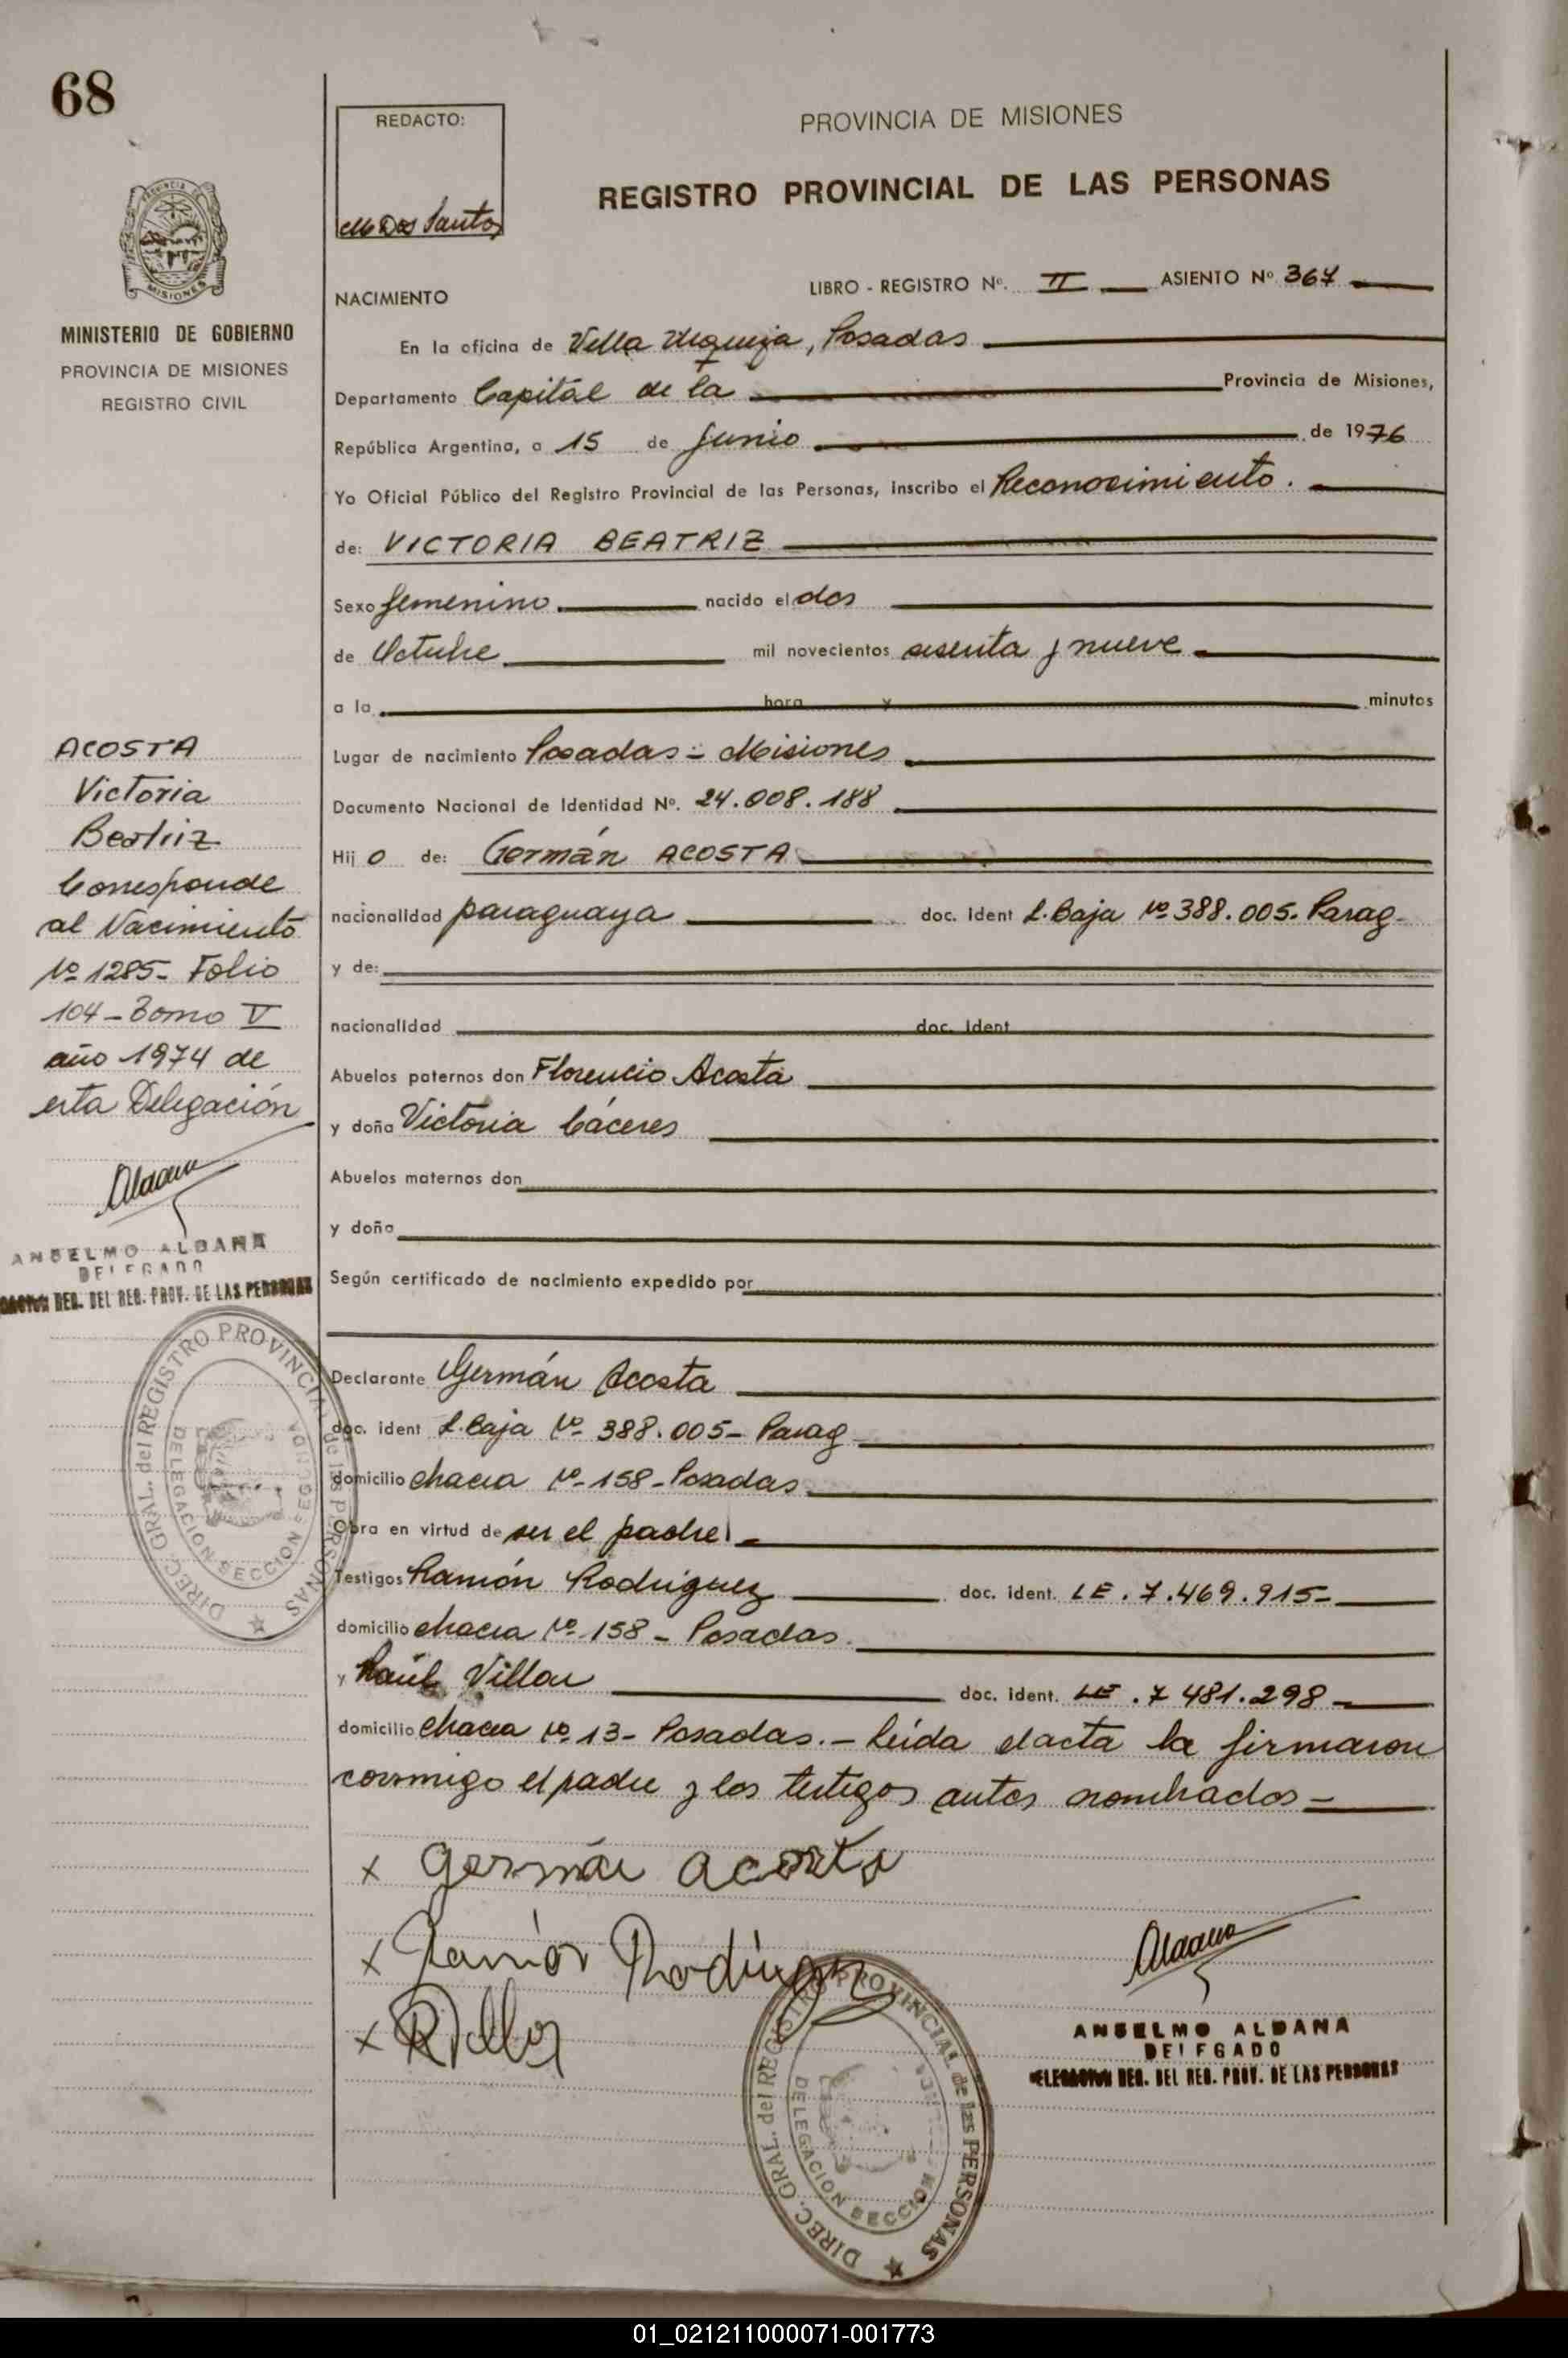 68
REDACTO:
M Dos Santos
PROVINCIA DE MISIONES
REGISTRO PROVINCIAL DE LAS PERSONAS
PROVINCIA DE
MISIONES
MINISTERIO DE GOBIERNO
PROVINCIA DE MISIONES
REGISTRO CIVIL
NACIMIENTO
LIBRO - REGISTRO Nº. II ASIENTO Nº 367
En la oficina de Villa Urquiza, Posadas
Departamento Capital de la Provincia de Misiones,
República Argentina, a 15 de Junio de 1976
Yo Oficial Público del Registro Provincial de las Personas, inscribo el Reconocimiento.
de: VICTORIA BEATRIZ
Sexo femenino. nacido el dos
de Octubre mil novecientos sesenta y nueve
a la hora y minutos
Lugar de nacimiento Posadas - Misiones
Documento Nacional de Identidad Nº. 24.008.188
Hij o de: Germán ACOSTA
nacionalidad paraguaya doc. ident L. Baja Nº 388.005. Parag-
y de:
nacionalidad doc. ident
Abuelos paternos don Florencio Acosta
y doña Victoria Cáceres
Abuelos maternos don
y doña
Según certificado de nacimiento expedido por
Declarante Germán Acosta
doc. ident L. Baja Nº 388.005- Parag-
domicilio chacra Nº 158 - Posadas
Obra en virtud de ser el padre
Testigos Ramón Rodriguez doc. ident. LE. 7.469.915-
domicilio chacra Nº 158 - Posadas.
y Raúl Villar doc. ident. LE. 7 481.298-
domicilio chacra Nº 13- Posadas.- Leída el acta la firmaron
conmigo el padre y los testigos antes nombrados-
x Germán Acosta
x Ramón Rodriguez
x R Villar
ACOSTA
Victoria
Beatriz
Corresponde
al Nacimiento
Nº 1285- Folio
104- Tomo V
año 1974 de
esta Delegación
Aldana
ANSELMO ALDANA
DELEGADO
DEL REG. PROV. DE LAS PERSONAS
DIREC. GRAL. del REGISTRO PROVINCIAL de las PERSONAS
DELEGACION SECCION SEGUNDA
Aldana
ANSELMO ALDANA
DELEGADO
DELEGACION SEG. DEL REG. PROV. DE LAS PERSONAS
DIREC. GRAL. del REGISTRO PROVINCIAL de las PERSONAS
DELEGACION SECCION
01_021211000071-001773